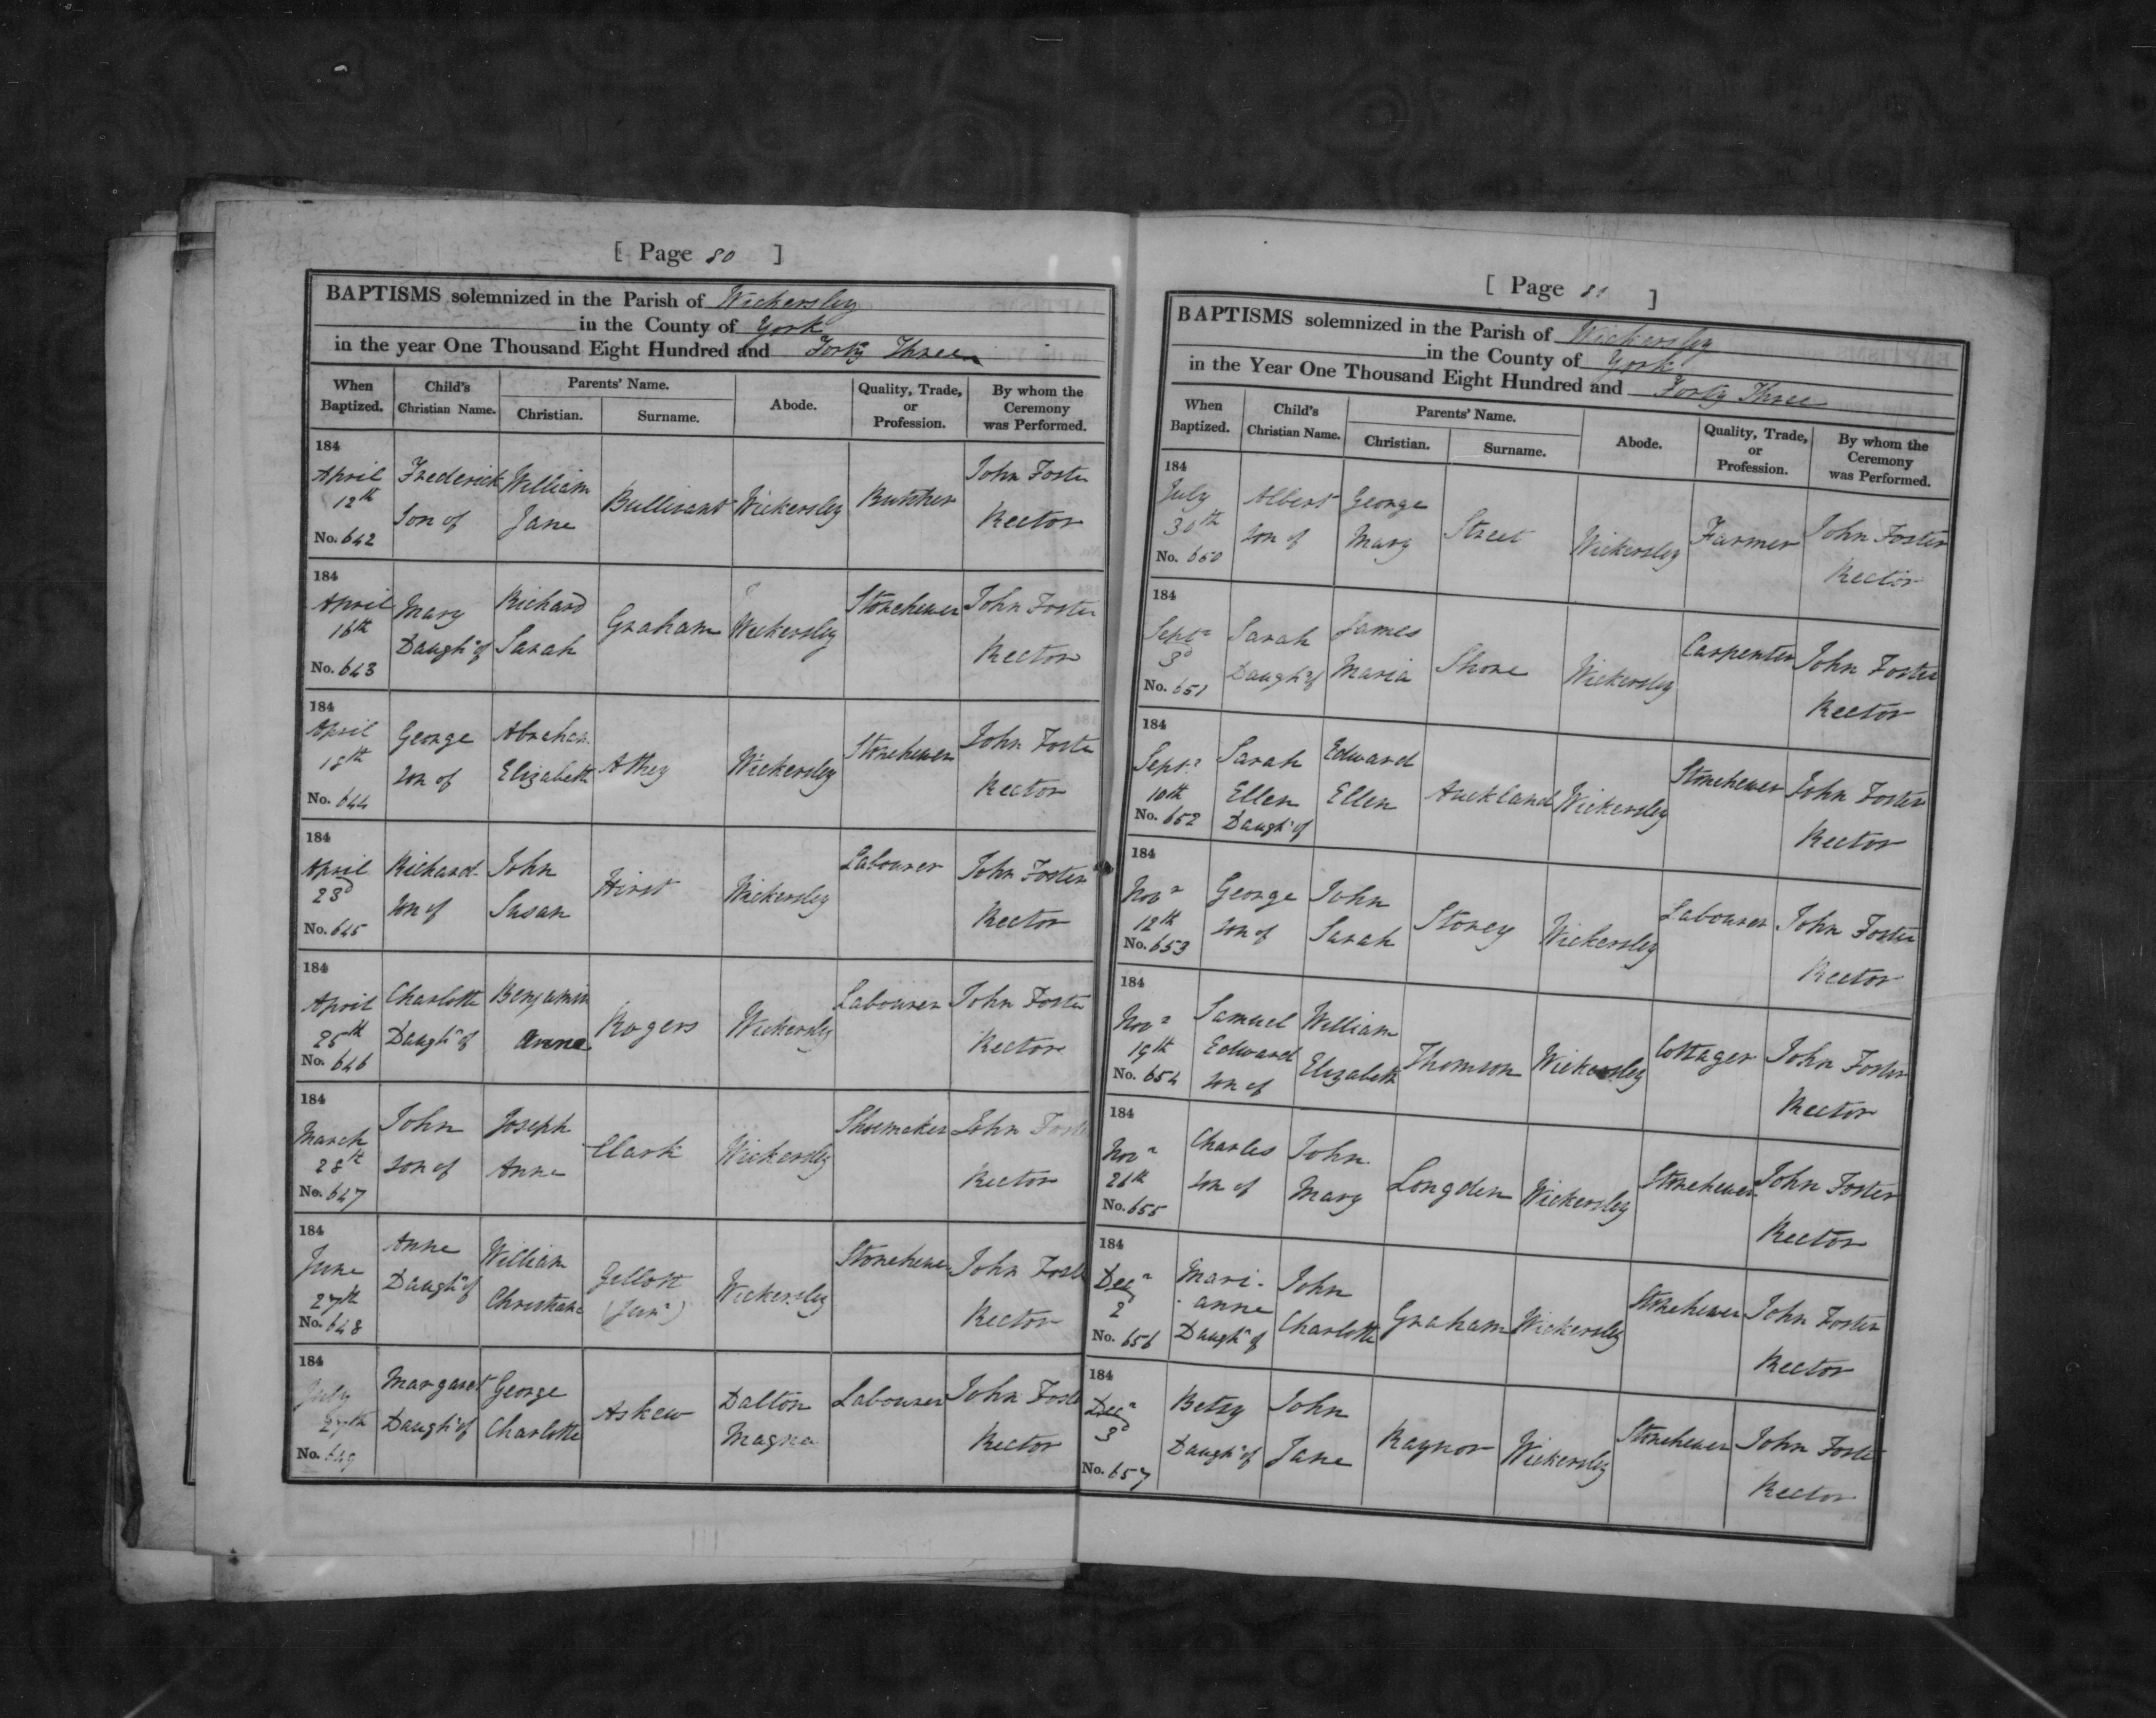 [ Page 80 ]
BAPTISMS solemnized in the Parish of Wickersley
in the County of York
in the year One Thousand Eight Hundred and Forty Three
When Baptized. Child's Christian Name. Parents' Name. Christian. Surname. Abode. Quality, Trade, or Profession. By whom the Ceremony was Performed.
184
April 12th Frederick William Bullivant Wickersley Butcher John Foster
No. 642 Son of Jane Rector
184
April 16th Mary Richard Graham Wickersley Stonehewer John Foster
No. 643 Daughr of Sarah Rector
184
April 18th George Abraham Athey Wickersley Stonehewer John Foster
No. 644 Son of Elizabeth Rector
184
April 23d Richard John Hirst Wickersley Labourer John Foster
No. 645 Son of Susan Rector
184
April 25th Charlotte Benjamin Rogers Wickersley Labourer John Foster
No. 646 Daughr of Anne Rector
184
March 28th John Joseph Clark Wickersley Shoemaker John Foster
No. 647 Son of Anne Rector
184
June 27th Anne William Gillott Wickersley Stonehewer John Foster
No. 648 Daughr of Christiana (Junr) Rector
184
July 27th Margaret George Askew Dalton Labourer John Foster
No. 649 Daughr of Charlotte Magna Rector
[ Page 81 ]
BAPTISMS solemnized in the Parish of Wickersley
in the County of York
in the Year One Thousand Eight Hundred and Forty Three
When Baptized. Child's Christian Name. Parents' Name. Christian. Surname. Abode. Quality, Trade, or Profession. By whom the Ceremony was Performed.
184
July 30th Albert George Street Wickersley Farmer John Foster
No. 650 Son of Mary Rector
184
Septr 3d Sarah James Shore Wickersley Carpenter John Foster
No. 651 Daughr of Maria Rector
184
Septr 10th Sarah Edward Auckland Wickersley Stonehewer John Foster
No. 652 Ellen Ellen Rector
Daughr of
184
Novr 12th George John Storey Wickersley Labourer John Foster
No. 653 Son of Sarah Rector
184
Novr 19th Samuel William Thomson Wickersley Cottager John Foster
No. 654 Edward Elizabeth Rector
Son of
184
Novr 26th Charles John Longden Wickersley Stonehewer John Foster
No. 655 Son of Mary Rector
184
Decr 2 Mari- John Graham Wickersley Stonehewer John Foster
No. 656 anne Charlotte Rector
Daughr of
184
Decr 3d Betsy John Raynor Wickersley Stonehewer John Foster
No. 657 Daughr of Jane Rector